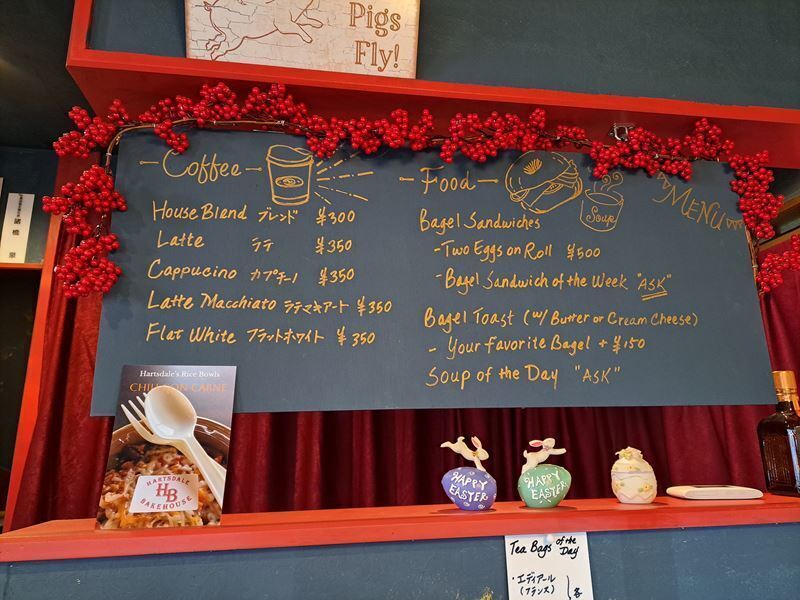 Pigs
Fly!
Coffee
House Blend ブレンド ¥300
Latte ラテ ¥350
Cappucino カプチーノ ¥350
Latte Macchiato ラテマキアート ¥350
Flat White フラットホワイト ¥350
Food
Soup
MENU
Bagel Sandwiches
- Two Eggs on Roll ¥500
- Bagel Sandwich of the Week "ASK"
Bagel Toast (w/ Butter or Cream Cheese)
- Your Favorite Bagel + ¥150
Soup of the Day "ASK"
Hartsdale's Rice Bowls
CHILI CON CARNE
HARTSDALE
HB
BAKEHOUSE
HAPPY
EASTER
HAPPY
EASTER
Tea Bags of the Day
・エディアール
(フランス)
各